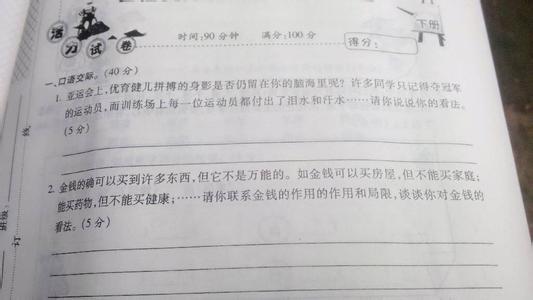 下册
活力试卷
时间:90分钟 满分:100分
得分:
一、口语交际。(40分)
1. 亚运会上,优育健儿拼搏的身影是否仍留在你的脑海里呢?许多同学只记得夺冠军
的运动员,而训练场上每一位运动员都付出了泪水和汗水……请你说说你的看法。
(5分)
2. 金钱的确可以买到许多东西,但它不是万能的。如金钱可以买房屋,但不能买家庭;
能买药物,但不能买健康;……请你联系金钱的作用的作用和局限,谈谈你对金钱的
看法。(5分)
班级:
线
订